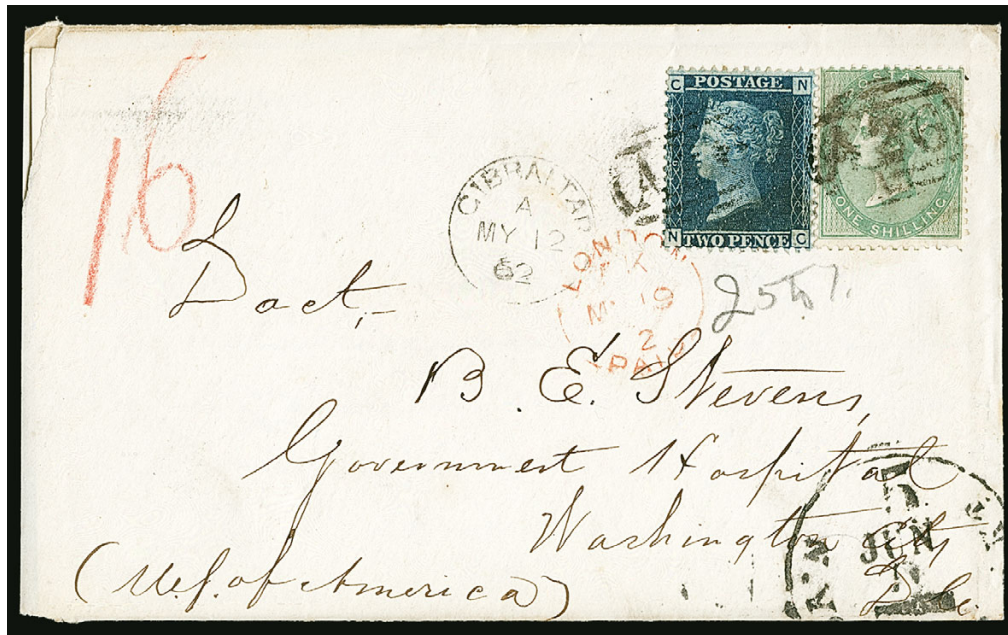 16
C POSTAGE N
N TWO PENCE C
POSTAGE
ONE SHILLING
A26
GIBRALTAR
A
MY 12
62
LONDON
MY 19
2
PAID
Doct,
B. E. Stevens,
Government Hospital
Washington City
D. C.
(U.S. of America)
JUN
5